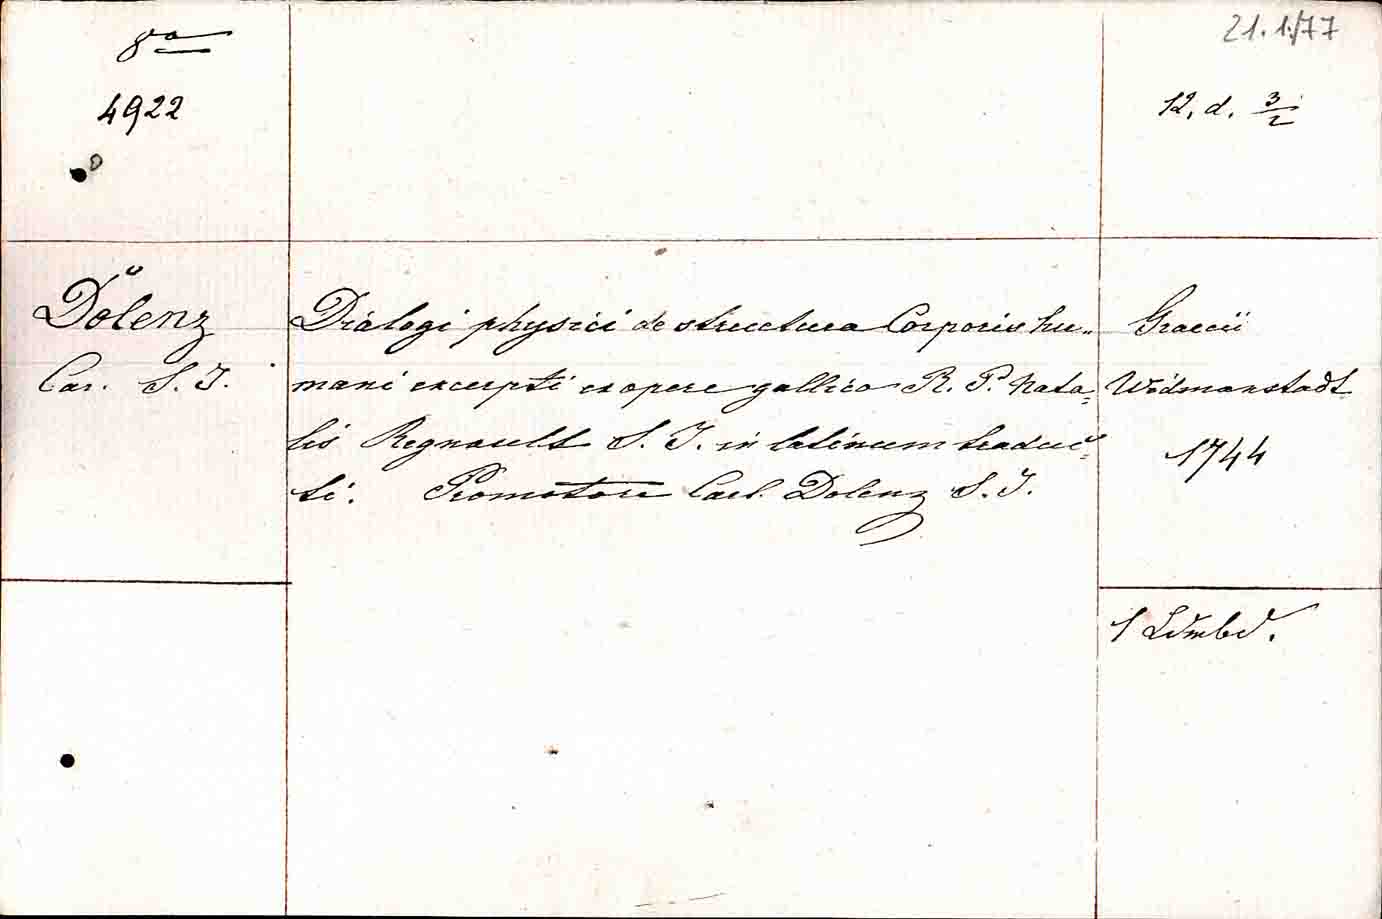 21.1./77
8º
4922
12. d. 3/2
Dölenz
Car. S. J.
Dialogi physici de structura Corporis hu„
mani excerpti ex opere gallico R. P. Nata=
lis Regnault S. J. in latinum traduc=
ti. Promotore Carl. Dolenz S. J.
Graecii
Widmanstadt
1744
1 Ldrnbd.